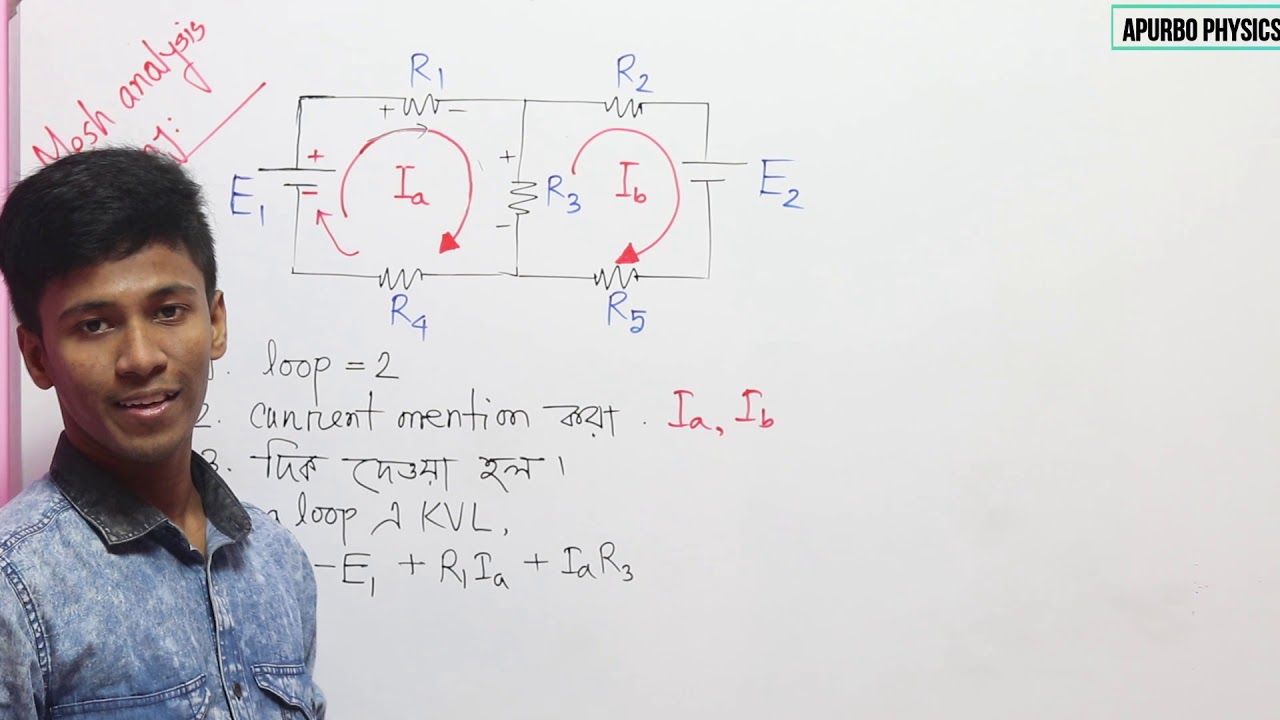 APURBO PHYSICS
Mesh analysis
R1 R2
+ −
+ + 
E1 − Ia R3 Ib E2
−
R4 R5
. loop = 2
2. cunrient mention করা . Ia, Ib
3. দিক দেওয়া হল।
loop এ KVL,
−E1 + R1Ia + IaR3